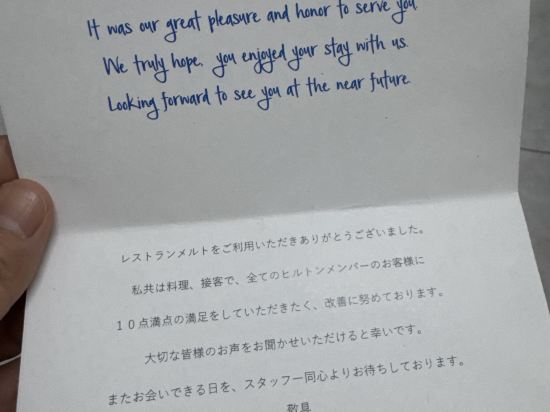 It was our great pleasure and honor to serve you
We truly hope, you enjoyed your stay with us.
Looking forward to see you at the near future.
レストランメルトをご利用いただきありがとうございました。
私共は料理、接客で、全てのヒルトンメンバーのお客様に
１０点満点の満足をしていただきたく、改善に努めております。
大切な皆様のお声をお聞かせいただけると幸いです。
またお会いできる日を、スタッフ一同心よりお待ちしております。
敬具